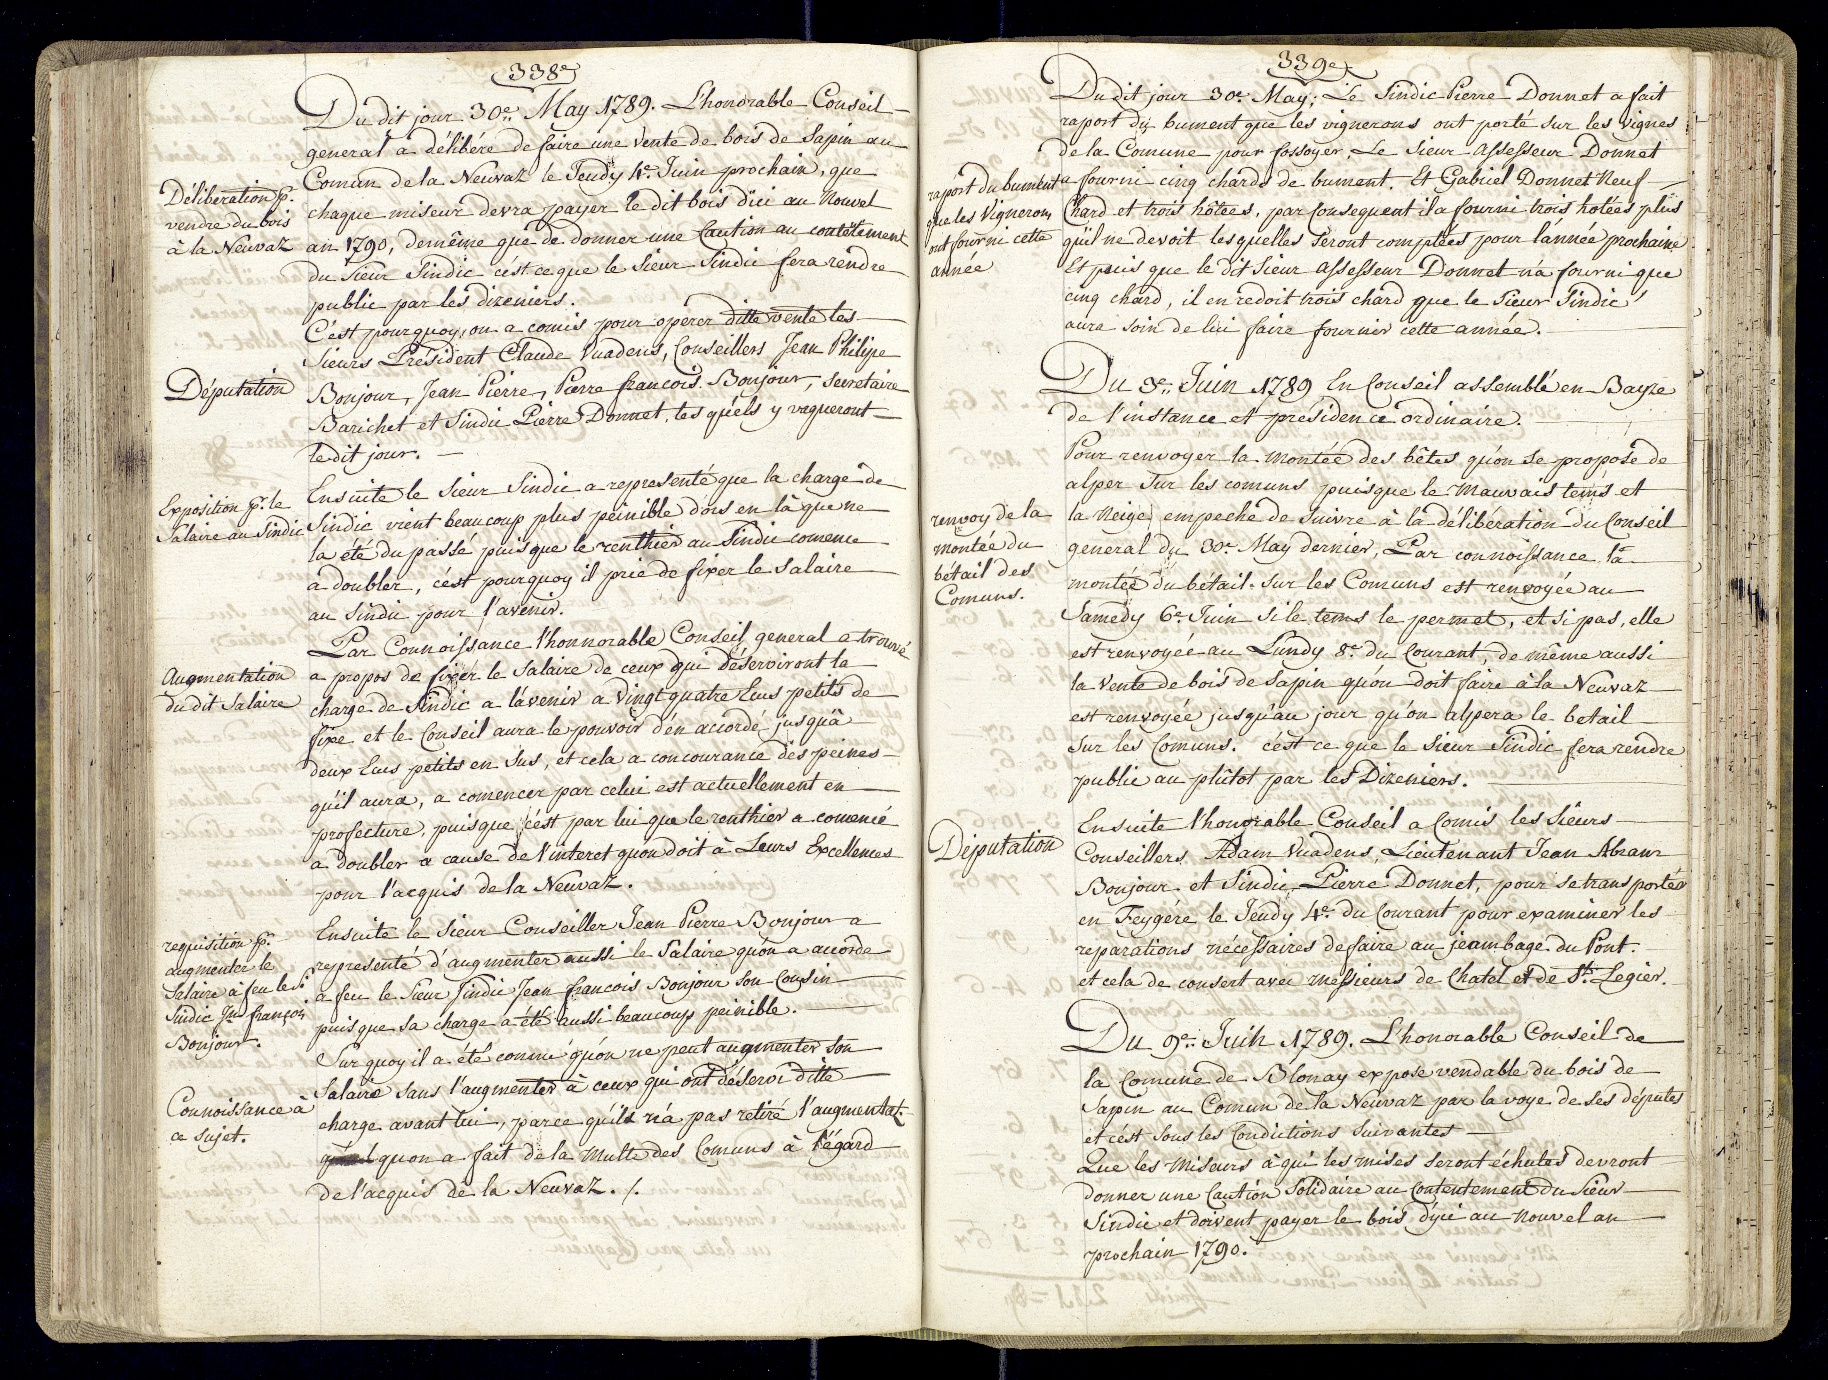 338e
Du dit jour 30e. May 1789. L'honorable Conseil
general a délibéré de faire une vente de bois de Sapin au
Comun de la Neuvaz le Jeudy 4e. Juin prochain, que
Délibération pr.
vendre du bois
à la Neuvaz
chaque miseur devra payer le dit bois d'ici au Nouvel
an 1790, demême que de donner une Caution au contêtement
du Sieur Sindic c'ést ce que le Sieur Sindic fera rendre
public par les dizeniers.
C'ést pourquoy, on a comis pour operer ditte vente les
Sieurs Président Claude Vuadens, Conseillers Jean Philipe
Députation
Bonjour, Jean Pierre, Pierre francois Bonjour, Secretaire
Barichet et Sindic Pierre Donnet, les quéls y vaqueront
le dit jour.
Exposition pr. le
Salaire au Sindic
Ensuite le Sieur Sindic a representé que la charge de
Sindic vient beaucoup plus peinible dors en là que ne
la été du passé puis que le renthier au Sindic comence
a doubler, c'ést pourquoy il prie de fixer le Salaire
au Sindic pour l'avenir.
Par Connoissance l'honnorable Conseil general a trouvé
Augmentation
du dit Salaire
a propos de fixer le Salaire de ceux qui déserviront la
charge de Sindic a l'avenir a Vingt quatre Ecus petits de
fixe et le Conseil aura le pouvoir d'en accorde jusqu'à
deux Ecus petits en sus, et cela a concourance des peines
qu'il aura, a comencer par celui est actuellement en
profecture, puisque c'ést par lui que le renthier a comencé
a doubler a cause de l'interet quon doit à Leurs Excellences
pour l'acquis de la Neuvaz.
requisition pr.
augmenter le
Salaire à feu le Sr.
Sindic Jn. françois
Bonjour.
Ensuite le Sieur Conseiller Jean Pierre Bonjour a
representé d'augmenter aussi le Salaire qu'on a accorde
a feu le Sieur Sindic Jean francois Bonjour Son Cousin
puis que sa charge a été aussi beaucoup peinible.
Sur quoy il a été connu qu'on ne peut augmenter Son
Connoissance à
ce sujet.
Salaire sans l'augmenter à ceux qui ont déservi ditte
charge avant lui, parce qu'ils n'a pas retiré l'augmentat.
quon a fait de la Multe des Comuns à l'égard
de l'acquis de la Neuvaz. /.
339e
Du dit jour 30e. May; Le Sindic Pierre Donnet a fait
raport du bument que les vignerons ont porté sur les vignes
de la Comune pour fossoyer, Le Sieur Assesseur Donnet
raport du bument
que les Vignerons
ont fourni cette
année
a fourni cinq chards de bument. Et Gabriel Donnet Neuf
Chard et trois hôtées, par Consequent il a fourni trois hotées plus
qu'il ne devoit lesquelles Seront comptées pour l'année prochaine
Et puis que le dit Sieur Assesseur Donnet n'a fourni que
cinq chard, il en redoit trois chard que le Sieur Sindic
aura soin de lui faire fournir cette année.
Du 3e. Juin 1789 En Conseil assemblé en Bayze
de l'instance et présidence ordinaire.
renvoy de la
montée du
bétail des
Comuns.
Pour renvoyer la montée des bêtes qu'on se propose de
alper sur les comuns puisque le mauvais tems et
la Neige empeche de suivre à la délibération du Conseil
general du 30e. May dernier, Par connoissance la
montée du betail sur les Comuns est renvoyée au
Samedy 6e. Juin si le tems le permet, et si pas, elle
est renvoyée au Lundy 8e. du Courant, de même aussi
la Vente de bois de Sapin qu'on doit faire à la Neuvaz
est renvoyée jusqu'au jour qu'on alpera le betail
sur les Comuns. c'ést ce que le Sieur Sindic fera rendre
public au plûtot par les Dizeniers.
Députation
Ensuite l'honorable Conseil a Comis les Sieurs
Conseillers, Adam Vuadens, Lieutenant Jean Abram
Bonjour et Sindic, Pierre Donnet, pour se transporter
en Feygére le Jeudy 4e. du Courant pour examiner les
reparations nécessaires de faire au jeambage du Pont.
et cela de consert avec messieurs de Chatel et de St. Legier.
Du 9e. Juin 1789. L'honorable Conseil de
la Comune de Blonay expose vendable du bois de
Sapin au Comun de la Neuvaz par la voye de ses députés
et c'ést sous les Conditions Suivantes
Que les Miseurs à qui les mises seront échutes devront
donner une Caution Solidaire au Contentement du Sieur
Sindic et doivent payer le bois d'yci au Nouvel an
prochain 1790.